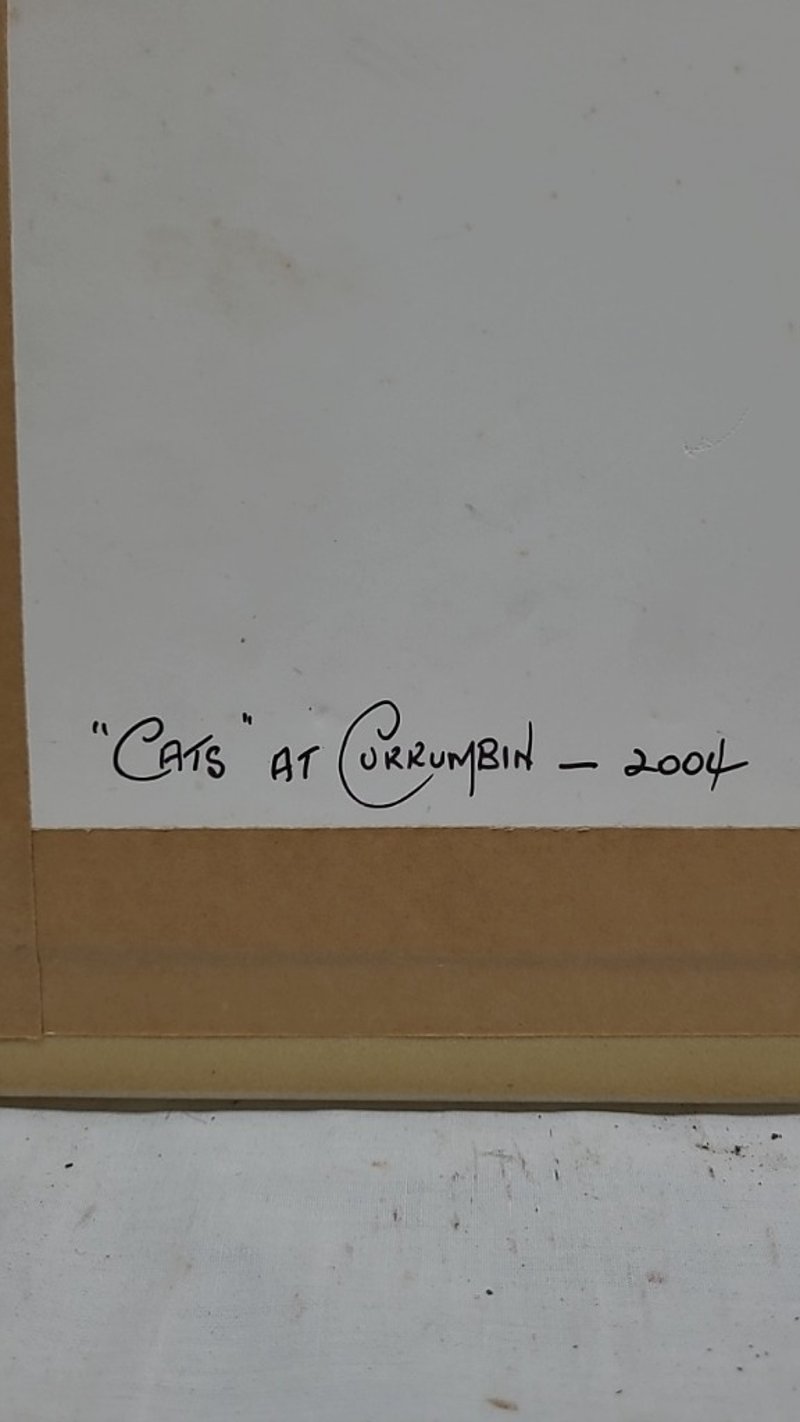 "CATS" AT CURRUMBIN – 2004